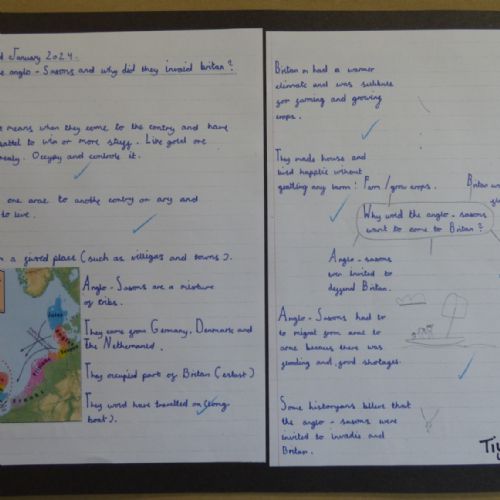 January 2024.
anglo-Saxons and why did they invaid britan?
means when they come to the contry and have
battel to win or more stuff. Like gold ore
Occupy and controle it.
one arae to another contry or any and
to live.
in a place (such as villigas and towns).
Anglo-Saxons are a mixture
of tribs.
They came from Germany, Denmark and
the Netherland.
They occupied part of Britan (erlast)
They word have travelled on (long-
boat).
Britan had a warmer
climate and was
for farming and growing
crops.
They made house and
livd happlie without
any harm:
Farm/grow crops.
Britan
Why word the anglo-saxons
want to come to Britan?
Anglo-saxons
were invited to
deffend Britan.
Anglo-Saxons had to
to migrat from arae to
arae becaus there was
flooding and food shotages.
Some historyans believe that
the anglo-saxons were
invited to invadie and
Britan.